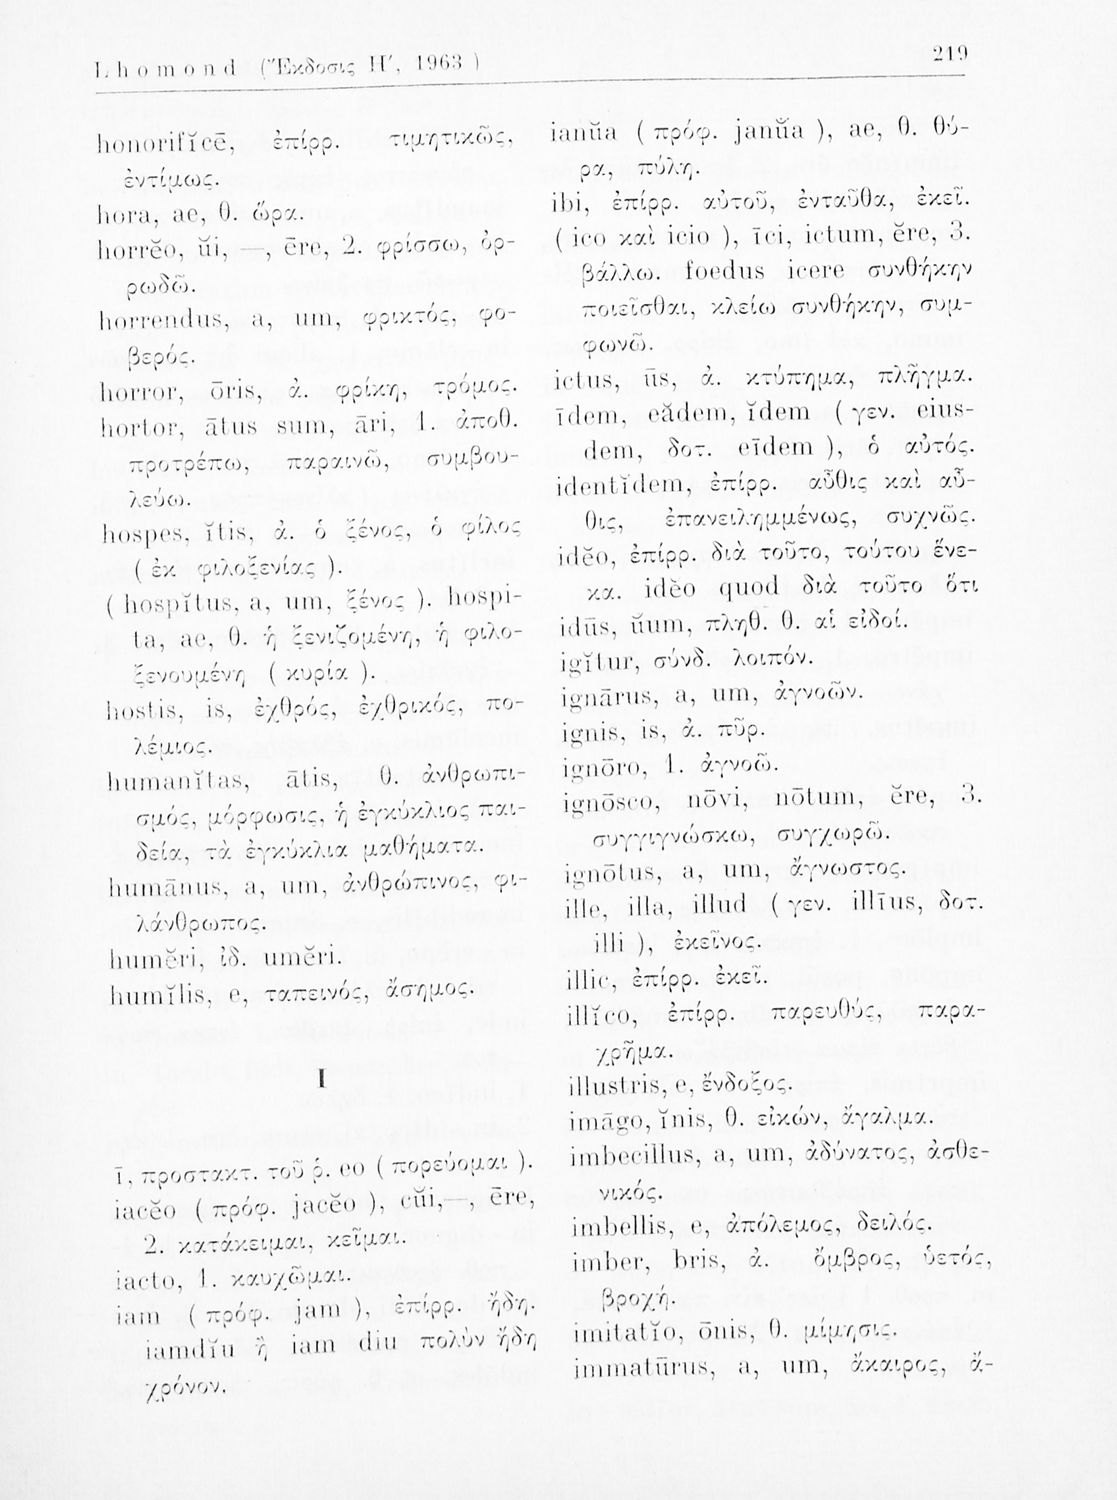 Lhomond (Ἔκδοσις Η′, 1963)
219
honorifĭcē, ἐπίρρ. τιμητικῶς,
ἐντίμως.
hora, ae, θ. ὥρα.
horrĕo, ŭi, —, ēre, 2. φρίσσω, ὀρ-
ρωδῶ.
horrendus, a, um, φρικτός, φο-
βερός.
horror, ōris, ἀ. φρίκη, τρόμος.
hortor, ātus sum, āri, 1. ἀποθ.
προτρέπω, παραινῶ, συμβου-
λεύω.
hospes, ĭtis, ἀ. ὁ ξένος, ὁ φίλος
( ἐκ φιλοξενίας ).
( hospĭtus, a, um, ξένος ). hospi-
ta, ae, θ. ἡ ξενιζομένη, ἡ φιλο-
ξενουμένη ( κυρία ).
hostis, is, ἐχθρός, ἐχθρικός, πο-
λέμιος.
humanĭtas, ātis, θ. ἀνθρωπι-
σμός, μόρφωσις, ἡ ἐγκύκλιος παι-
δεία, τὰ ἐγκύκλια μαθήματα.
humānus, a, um, ἀνθρώπινος, φι-
λάνθρωπος.
humĕri, ἰδ. umĕri.
humĭlis, e, ταπεινός, ἄσημος.
I
ī, προστακτ. τοῦ ῥ. eo ( πορεύομαι ).
iacĕo ( πρόφ. jacĕo ), cŭi,—, ēre,
2. κατάκειμαι, κεῖμαι.
iacto, 1. καυχῶμαι.
iam ( πρόφ. jam ), ἐπίρρ. ἤδη.
iamdĭu ἢ iam diu πολὺν ἤδη
χρόνον.
ianŭa ( πρόφ. janŭa ), ae, θ. θύ-
ρα, πύλη.
ibi, ἐπίρρ. αὐτοῦ, ἐνταῦθα, ἐκεῖ.
( ico καὶ icio ), īci, ictum, ĕre, 3.
βάλλω. foedus icere συνθήκην
ποιεῖσθαι, κλείω συνθήκην, συμ-
φωνῶ.
ictus, ūs, ἀ. κτύπημα, πλῆγμα.
īdem, eădem, ĭdem ( γεν. eius-
dem, δοτ. eīdem ), ὁ αὐτός.
identĭdem, ἐπίρρ. αὖθις καὶ αὖ-
θις, ἐπανειλημμένως, συχνῶς.
idĕo, ἐπίρρ. διὰ τοῦτο, τούτου ἕνε-
κα. idĕo quod διὰ τοῦτο ὅτι
idūs, ŭum, πληθ. θ. αἱ εἰδοί.
igĭtur, σύνδ. λοιπόν.
ignārus, a, um, ἀγνοῶν.
ignis, is, ἀ. πῦρ.
ignōro, 1. ἀγνοῶ.
ignōsco, nōvi, nōtum, ĕre, 3.
συγγιγνώσκω, συγχωρῶ.
ignōtus, a, um, ἄγνωστος.
ille, illa, illud ( γεν. illīus, δοτ.
illi ), ἐκεῖνος.
illic, ἐπίρρ. ἐκεῖ.
illĭco, ἐπίρρ. παρευθύς, παρα-
χρῆμα.
illustris, e, ἔνδοξος.
imāgo, ĭnis, θ. εἰκών, ἄγαλμα.
imbecillus, a, um, ἀδύνατος, ἀσθε-
νικός.
imbellis, e, ἀπόλεμος, δειλός.
imber, bris, ἀ. ὄμβρος, ὑετός,
βροχή.
imitatĭo, ōnis, θ. μίμησις.
immatūrus, a, um, ἄκαιρος, ἄ-